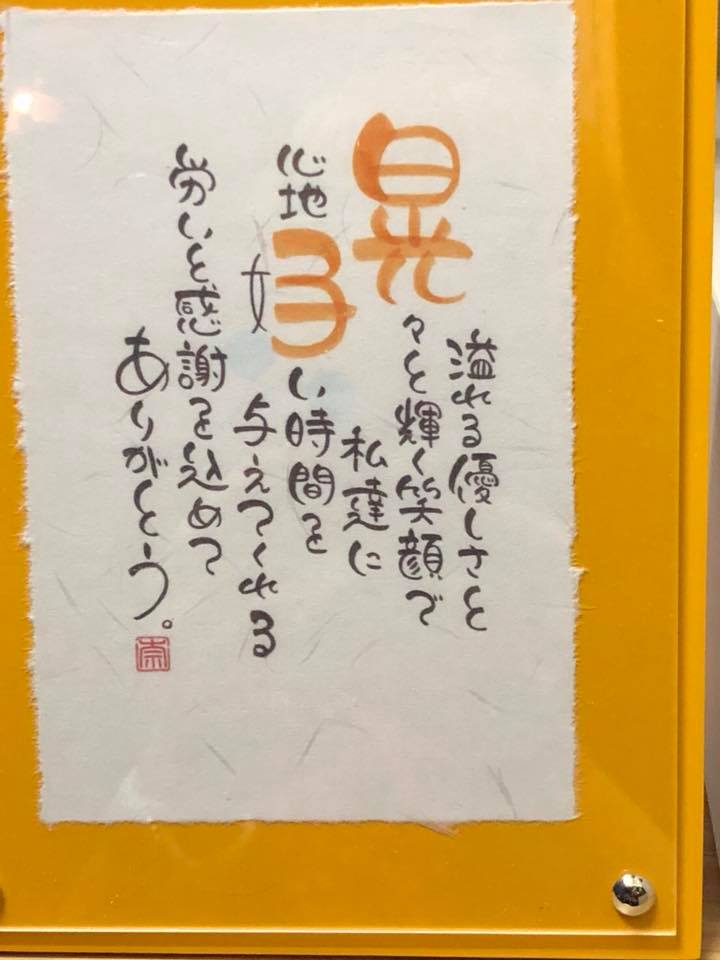 溢れる優しさと
晃々と輝く笑顔で
私達に
心地好い時間を
与えてくれる
労いと感謝を込めて
ありがとう。
崇